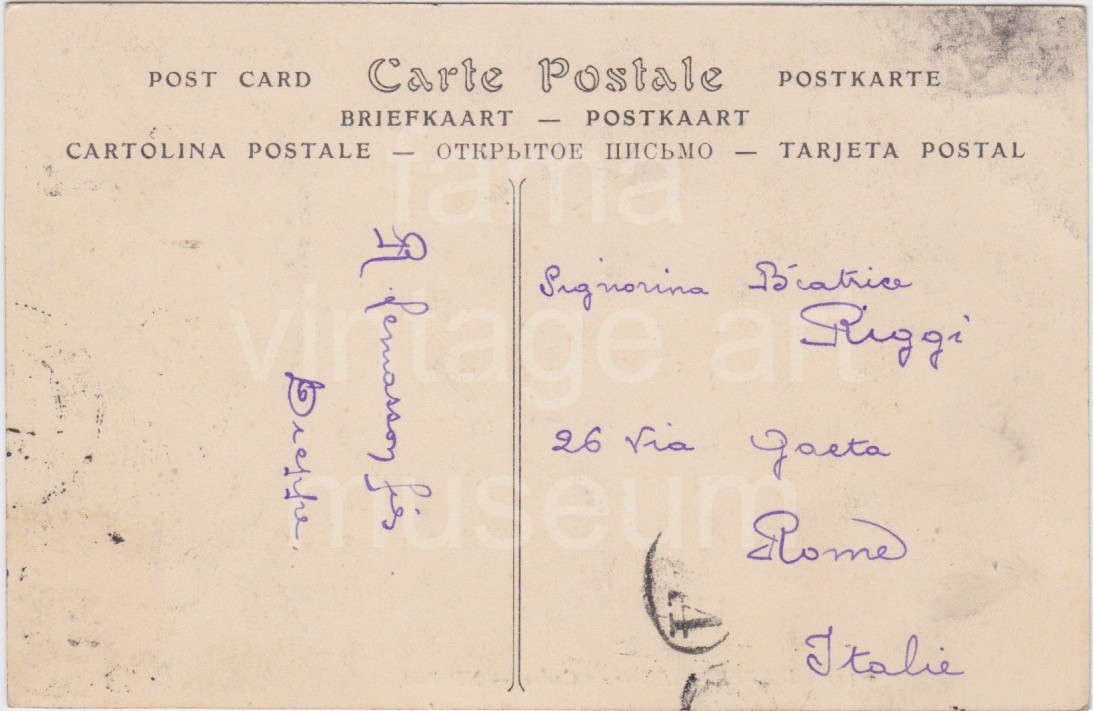 POST CARD Carte Postale POSTKARTE
BRIEFKAART — POSTKAART
CARTOLINA POSTALE — ОТКРЫТОЕ ПИСЬМО — TARJETA POSTAL
fama
vintage art
museum
Signorina Béatrice
Riggi
26 Via Gaeta
Rome
Italie
R. fils
Dieppe.